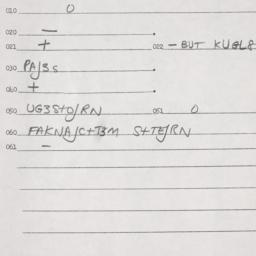 010 0
020 — .
021 + 022 – BUT KUGL8
030 PA/3S .
040 + .
050 UG3S+O/RN 051 0
060 FAKNA/C+BM S+TE/RN
061 –